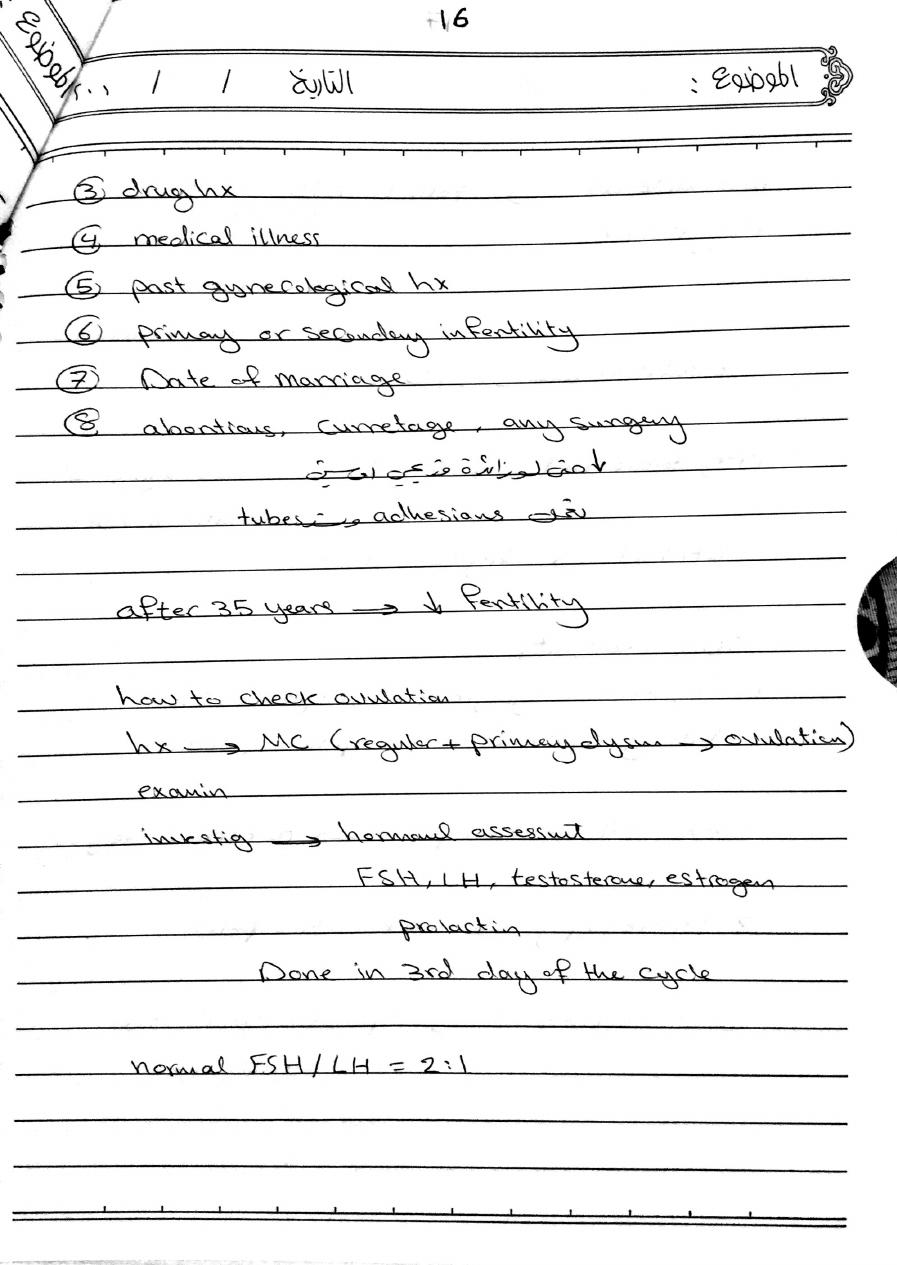 16
الموضوع
الموضوع :
التاريخ / / ٢٠٠
③ drug hx
④ medical illness
⑤ past gynecological hx
⑥ primary or secondary infertility
⑦ Date of marriage
⑧ abortions, curretage, any surgery
↓ حتى لو زائدة
adhesions tubes
after 35 years → ↓ fertility
how to check ovulation
hx → MC (regular + primary dysm → ovulation)
examin
investig → hormonal assessmt
FSH, LH, testosterone, estrogen
prolactin
Done in 3rd day of the cycle
normal FSH/LH = 2:1